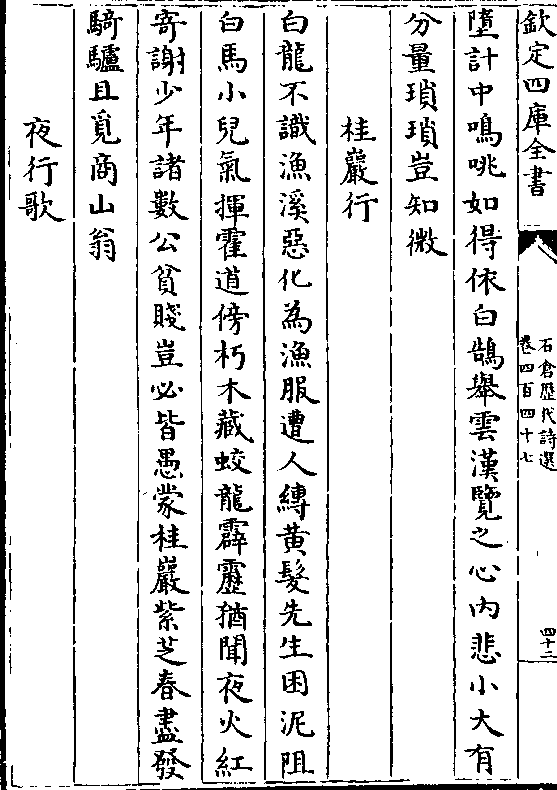 欽定四庫全書
石倉歴代詩選
卷四百四十七
四十二
墮計中鳴咷如得依白鵠舉雲漢覽之心内悲小大有
分量瑣瑣豈知微
桂巖行
白龍不識漁溪惡化為漁服遭人縛黄髮先生困泥阻
白馬小兒氣揮霍道傍朽木藏蛟龍霹靂猶聞夜火紅
寄謝少年諸數公貧賤豈必皆愚蒙桂巖紫芝春盡發
騎驢且覓商山翁
夜行歌